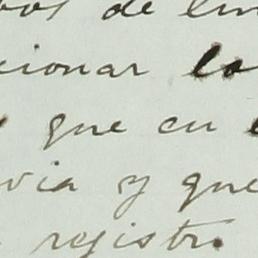 de
cionar lo
que en
via y que
registro